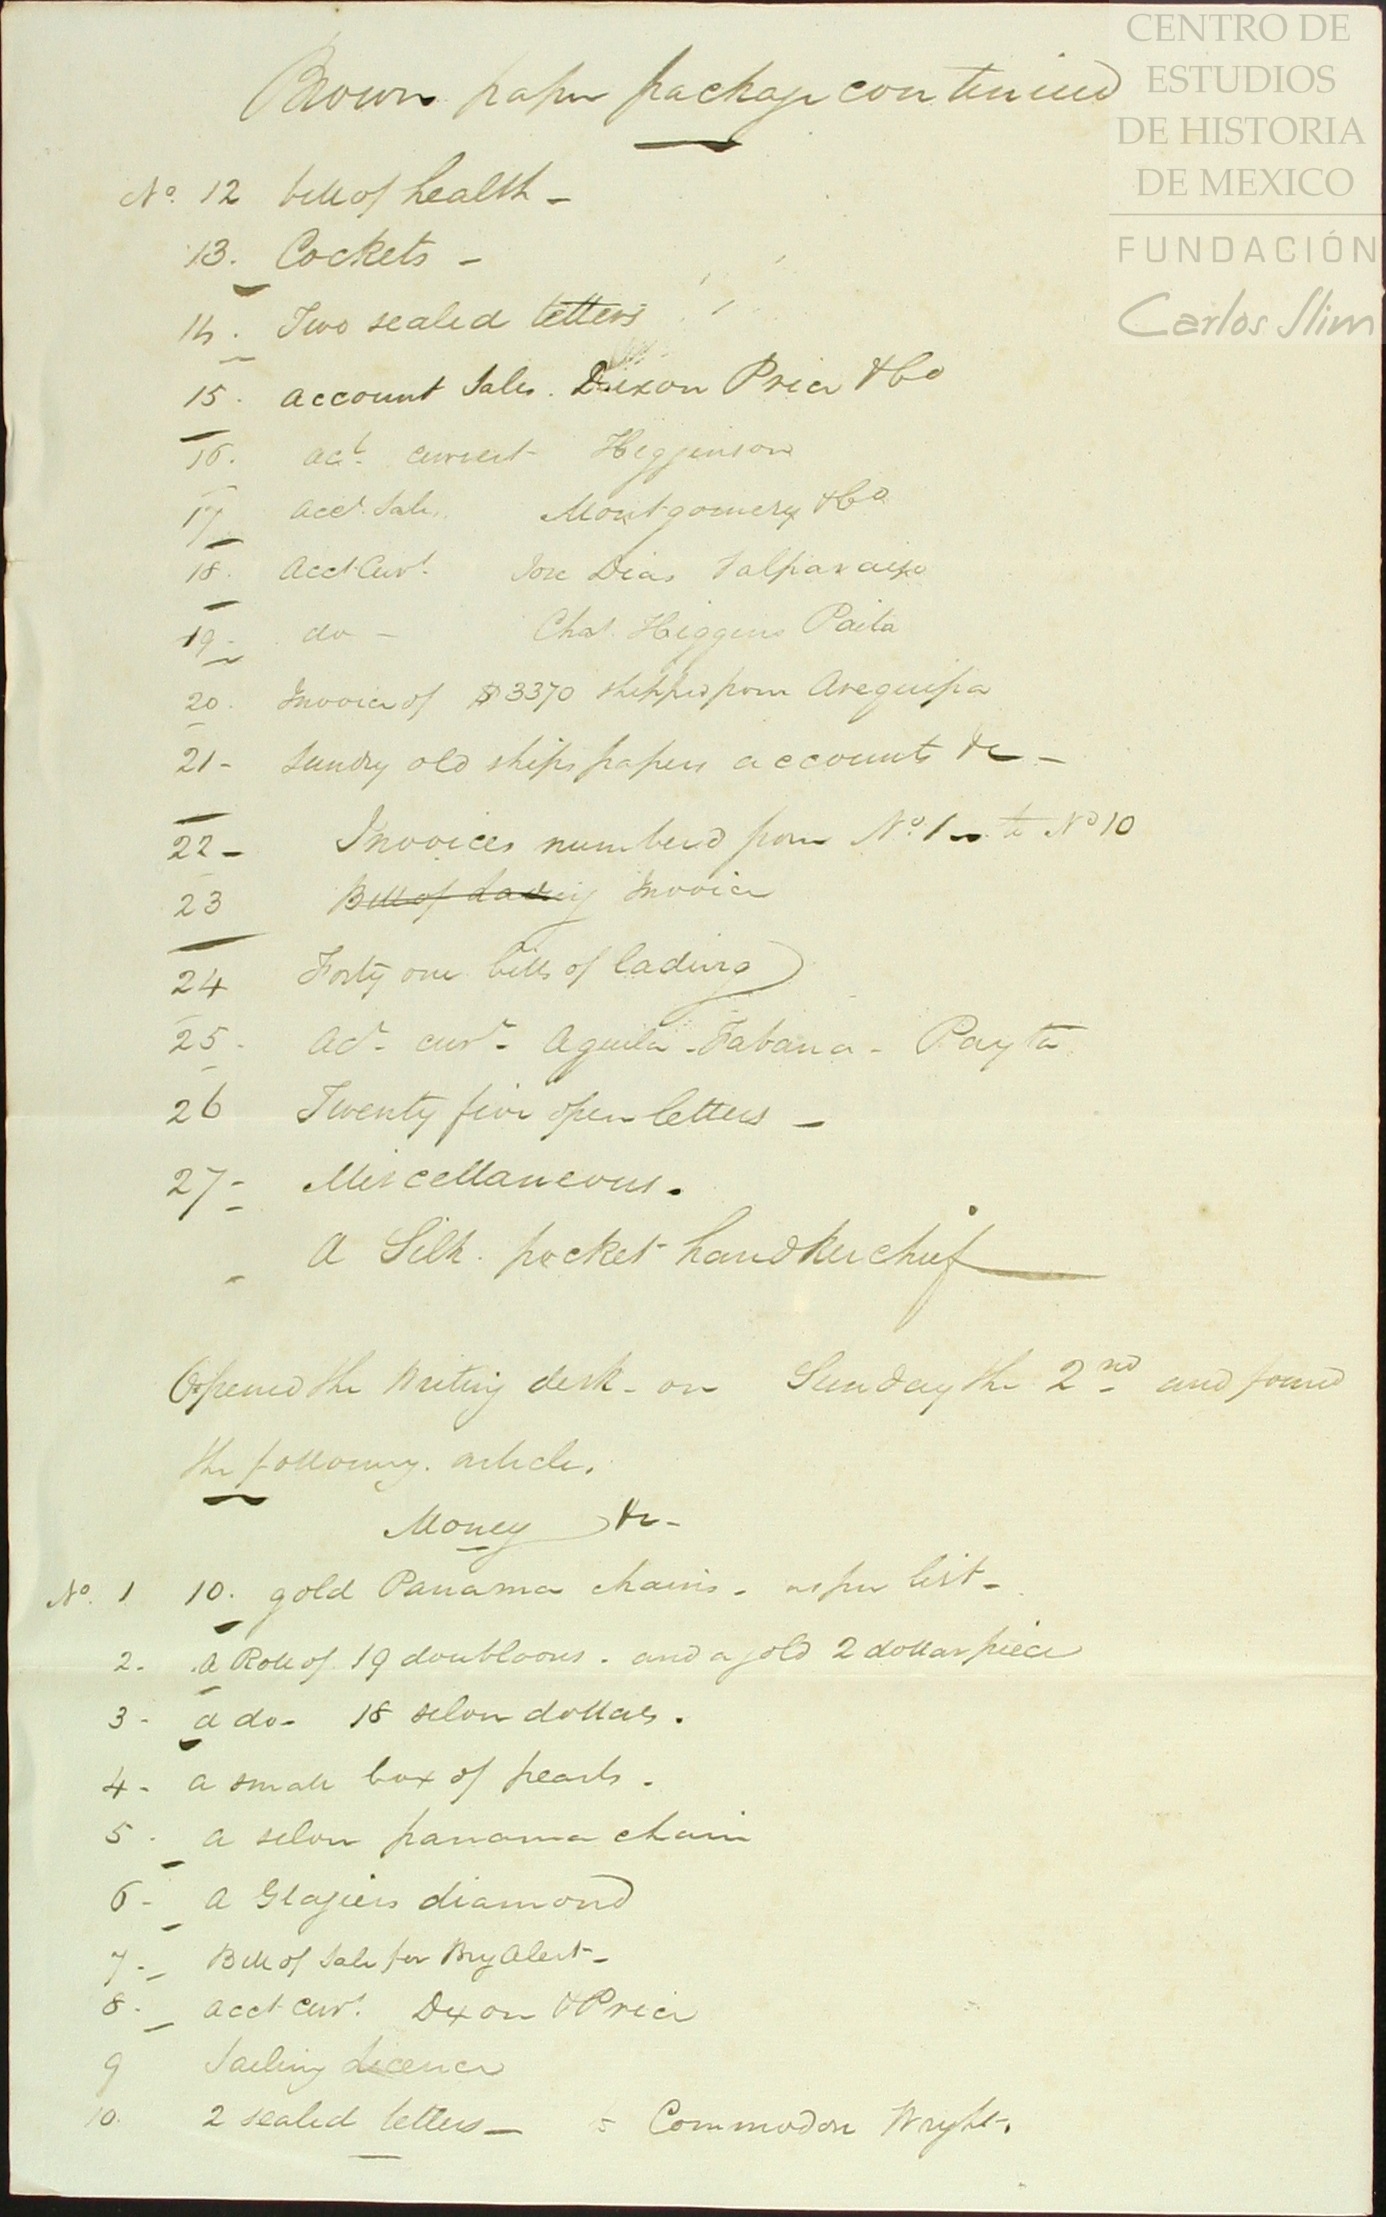 CENTRO DE
ESTUDIOS
DE HISTORIA
DE MEXICO
FUNDACIÓN
Carlos Slim
Brown paper package continued
No. 12 bill of health -
13. Cockets -
14. Two sealed letters
15. account Sales. Dixon Price & Co
16. act. current Higginson
17 Acct. Sales Montgomery & Co
18. Acct Curt. Jose Dias Valparaiso
19 - do - Chas. Higgins Paita
20. Invoice of $3370 shipped from Arequipa
21 - Sundry old ships papers accounts &c -
22 - Invoices numberd from No. 1 to No 10
23 Bill of Lading Invoice
24 Forty one bills of lading
25 - Act. curt. Aguila - Tabana - Payta
26 Twenty five open letters -
27 - Miscellaneous.
a Silk pocket handkerchief
Opened the Writing desk - on Sunday the 2nd and found
the following articles.
Money &c -
No. 1 10. gold Panama chains - as per list -
2. A Roll of 19 doubloons - and a gold 2 dollar piece
3 - a do - 18 silver dollars.
4 - a small box of pearls.
5 - a silver panama chain
6 - a Glaziers diamond
7 - Bill of Sale for Brig Alert -
8 - acct curt. Dixon & Price
9 Sailing Licence
10. 2 sealed letters - to Commodore Wright.